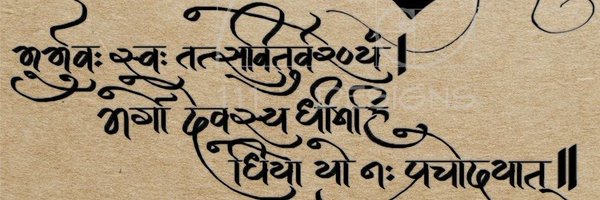 भूर्भुवः स्वः तत्सवितुर्वरेण्यं |
भर्गो देवस्य धीमहि
धियो यो नः प्रचोदयात् ||
DESIGNS